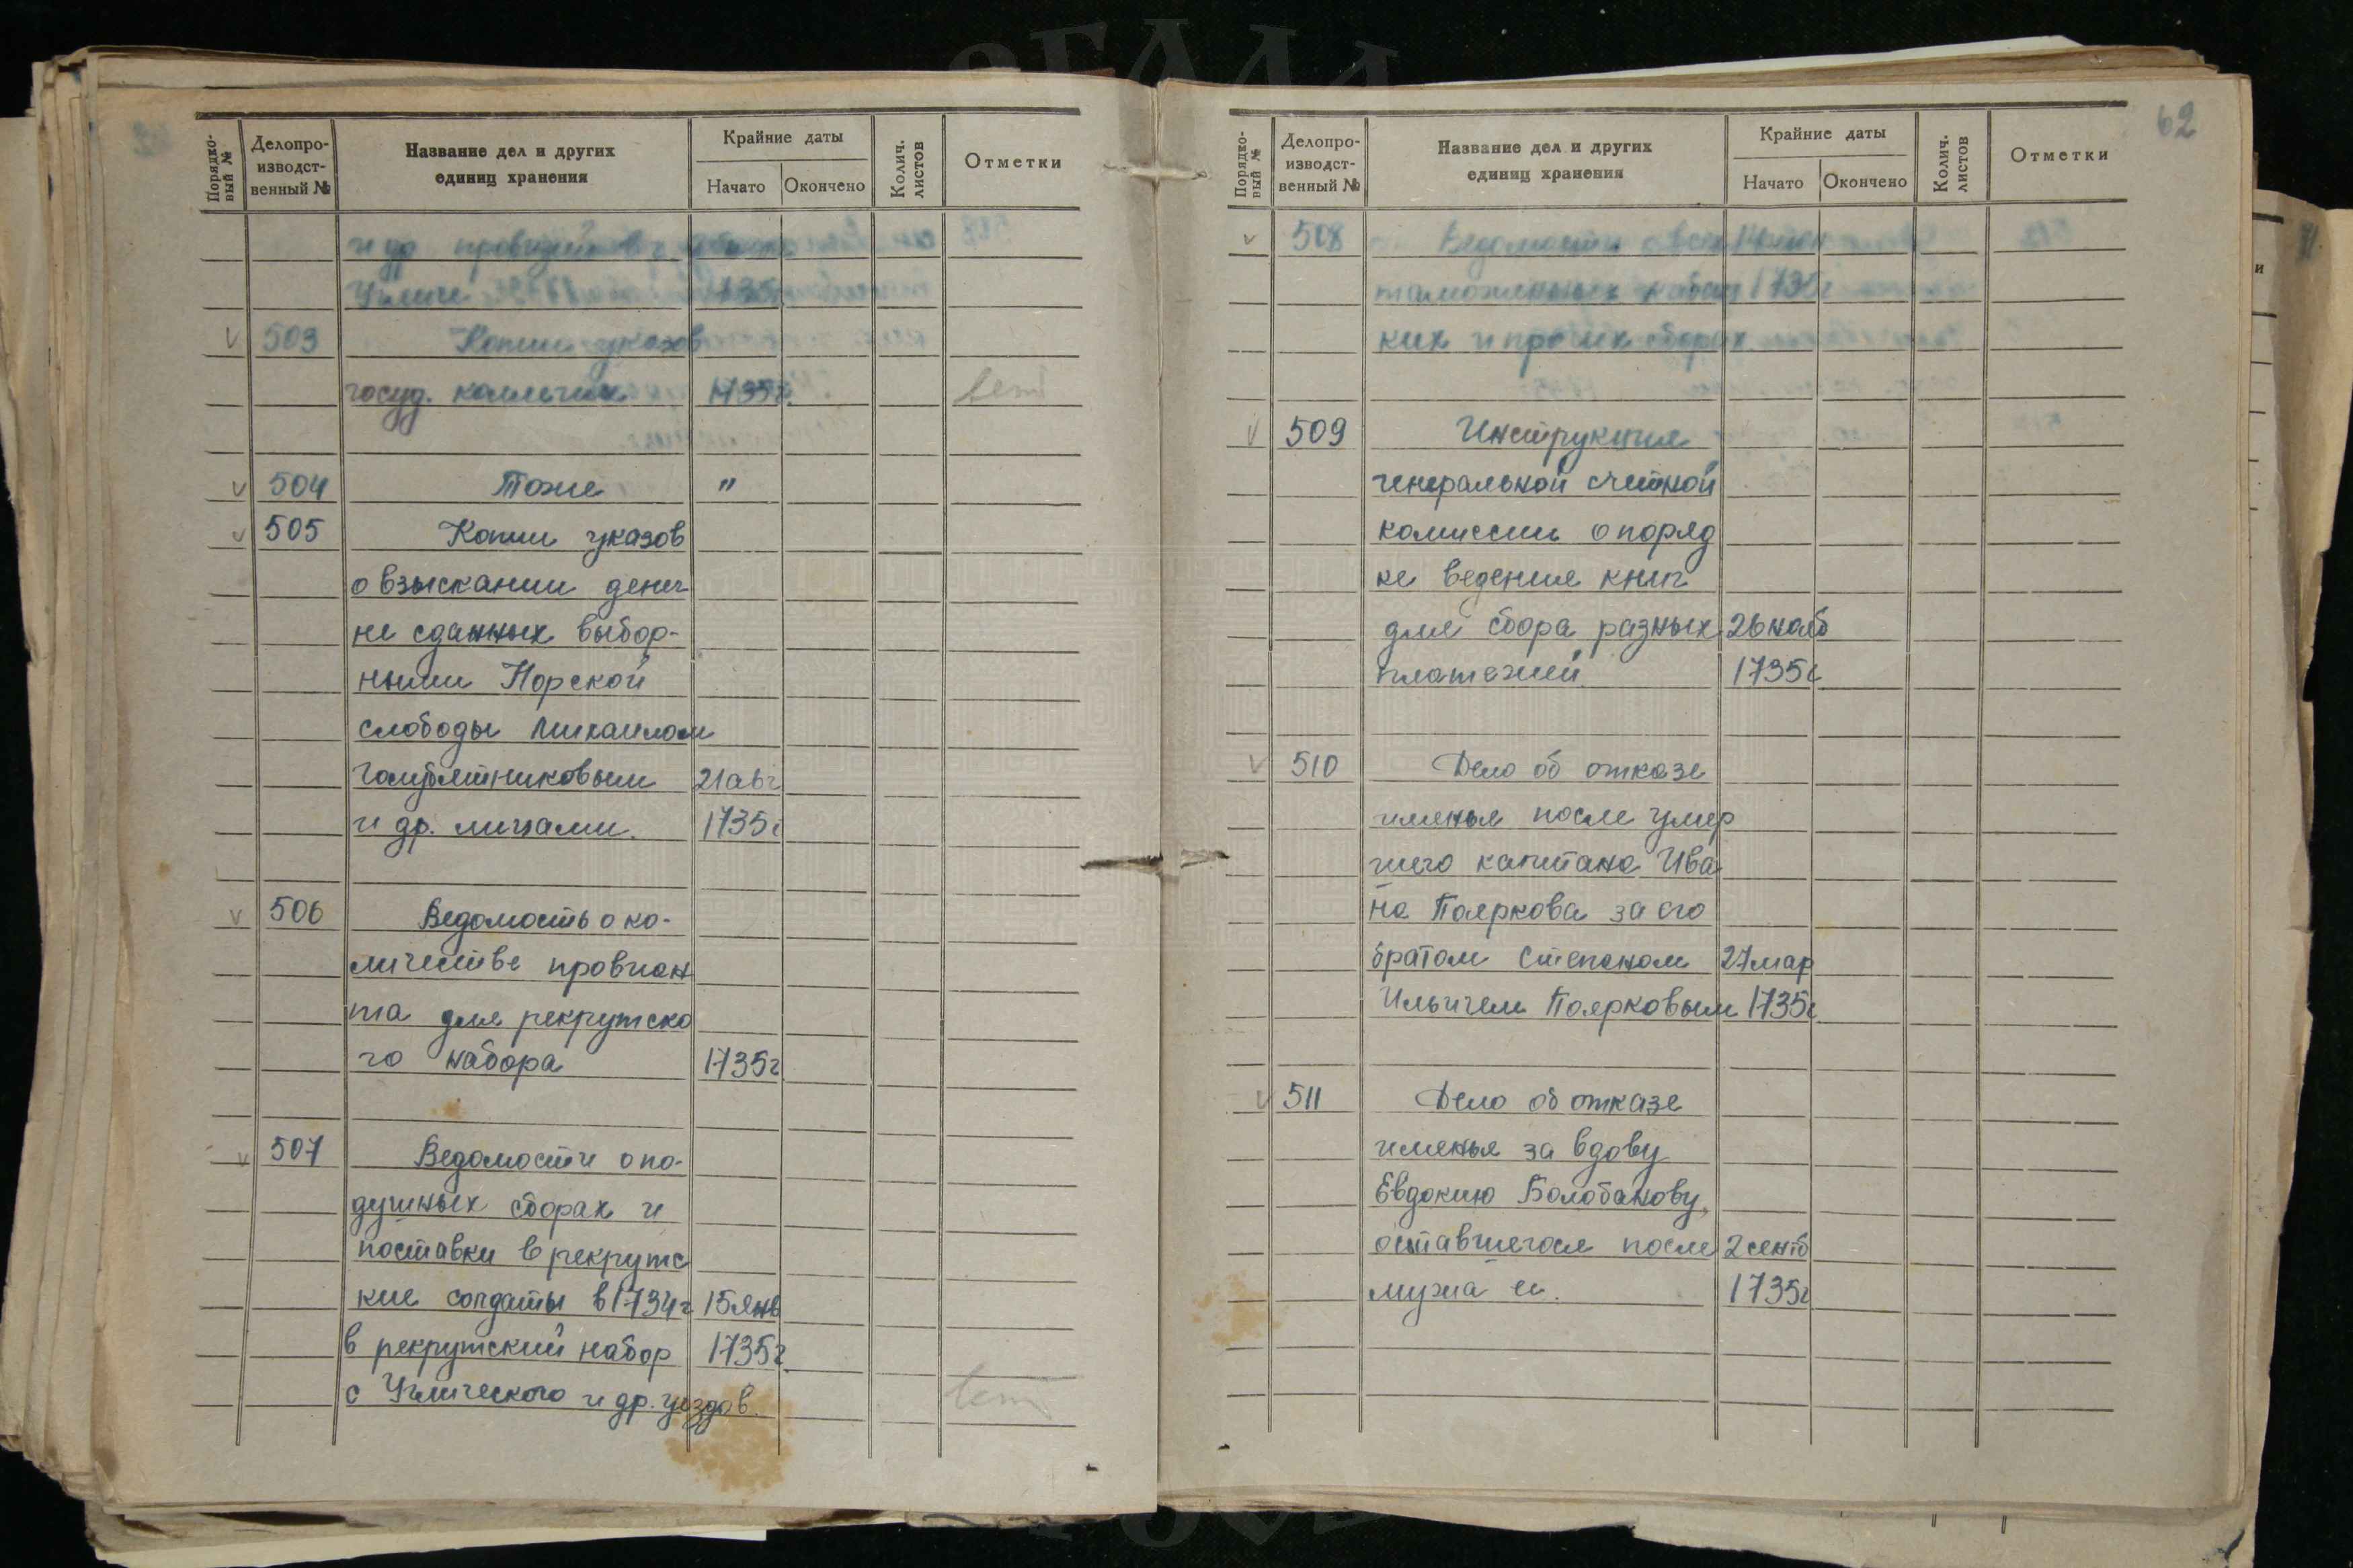 Порядко-
вый №
Делопро-
изводст-
венный №
Название дел и других
единиц хранения
Крайние даты
Начато
Окончено
Колич.
листов
Отметки
и др
Угличе 1735
503 Копии указов
госуд. коллегии 1735г.
504 Тоже "
505 Копии указов
о взыскании денег
не сданных выбор-
ными Норской
слободы Михаилом
21авг
и др. лицами. 1735г
506 Ведомость о ко-
личестве провиан
та для рекрутско
го набора 1735г
507 Ведомости о по-
душных сборах и
поставки в рекрутс
кие солдаты в 1734г 15янв
в рекрутский набор 1735г
с Углического и др. уездов
62
Порядко-
вый №
Делопро-
изводст-
венный №
Название дел и других
единиц хранения
Крайние даты
Начато
Окончено
Колич.
листов
Отметки
508 Ведомости о
таможенных кабац 1735г
ких и прочих сборах
509 Инструкция
генеральной счетной
комиссии о поряд
ке ведения книг
для сбора разных 26нояб
платежей 1735г
510 Дело об отказе
именья после умер
шего капитана Ива
на Пояркова за его
братом Степаном 27мар
Ильичем Поярковым 1735г
511 Дело об отказе
именья за вдову
Евдокию Болобанову,
оставшегося после 2сентб
мужа ея. 1735г